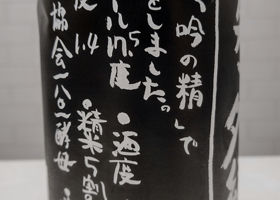 吟の精」で
をしました。
ール 度 ・酒度
度 1.4 ・精米5割
協会一八〇一酵母・